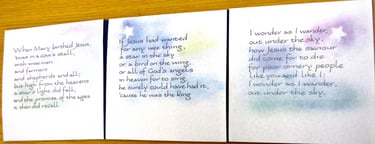 When Mary birthed Jesus,
'twas in a cow's stall,
with wise men
and farmers
and shepherds and all;
but high from the heavens
a star's light did fall,
and the promise of the ages
it then did recall.
If Jesus had wanted
for any wee thing,
a star in the sky
or a bird on the wing,
or all of God's angels
in heaven for to sing,
he surely could have had it,
'cause he was the king
I wonder as I wander,
out under the sky,
how Jesus the saviour
did come for to die
for poor ornery people
like you and like I;
I wonder as I wander,
out under the sky.